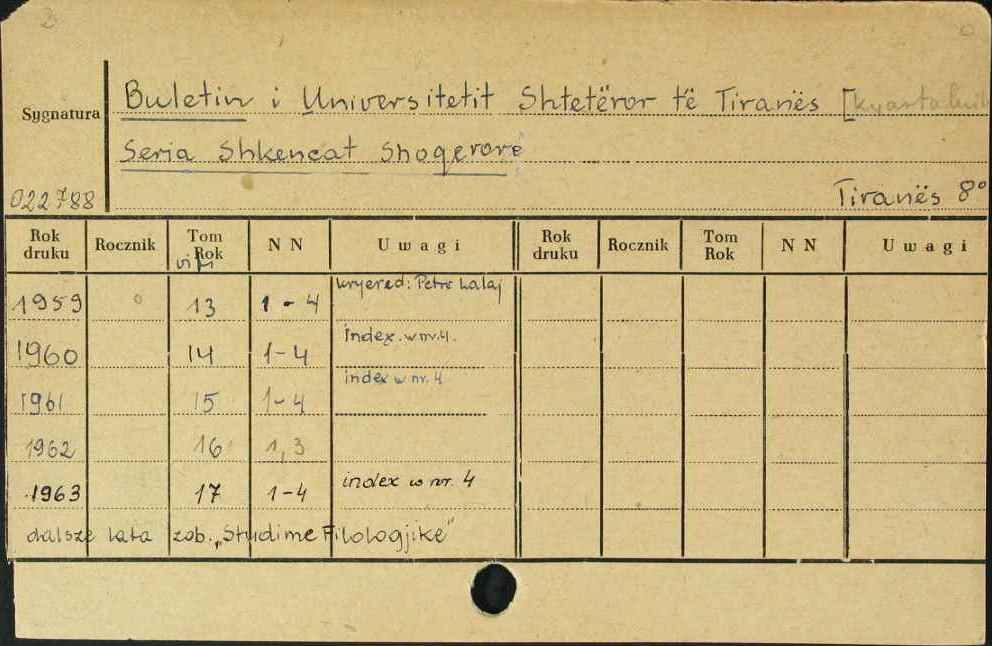 Sygnatura
Buletin i Universitetit Shtetëror të Tiranës
Seria Shkencat Shoqerore
022788
Tiranës 8°
Rok druku Rocznik Tom Rok NN Uwagi Rok druku Rocznik Tom Rok NN Uwagi
1959 13 1-4 Petro Lalaj
1960 14 1-4 index w nr. 4.
1961 15 1-4 index w nr. 4
1962 16 1,3
1963 17 1-4 index w nr. 4
dalsze lata zob. „Studime Filologjike"